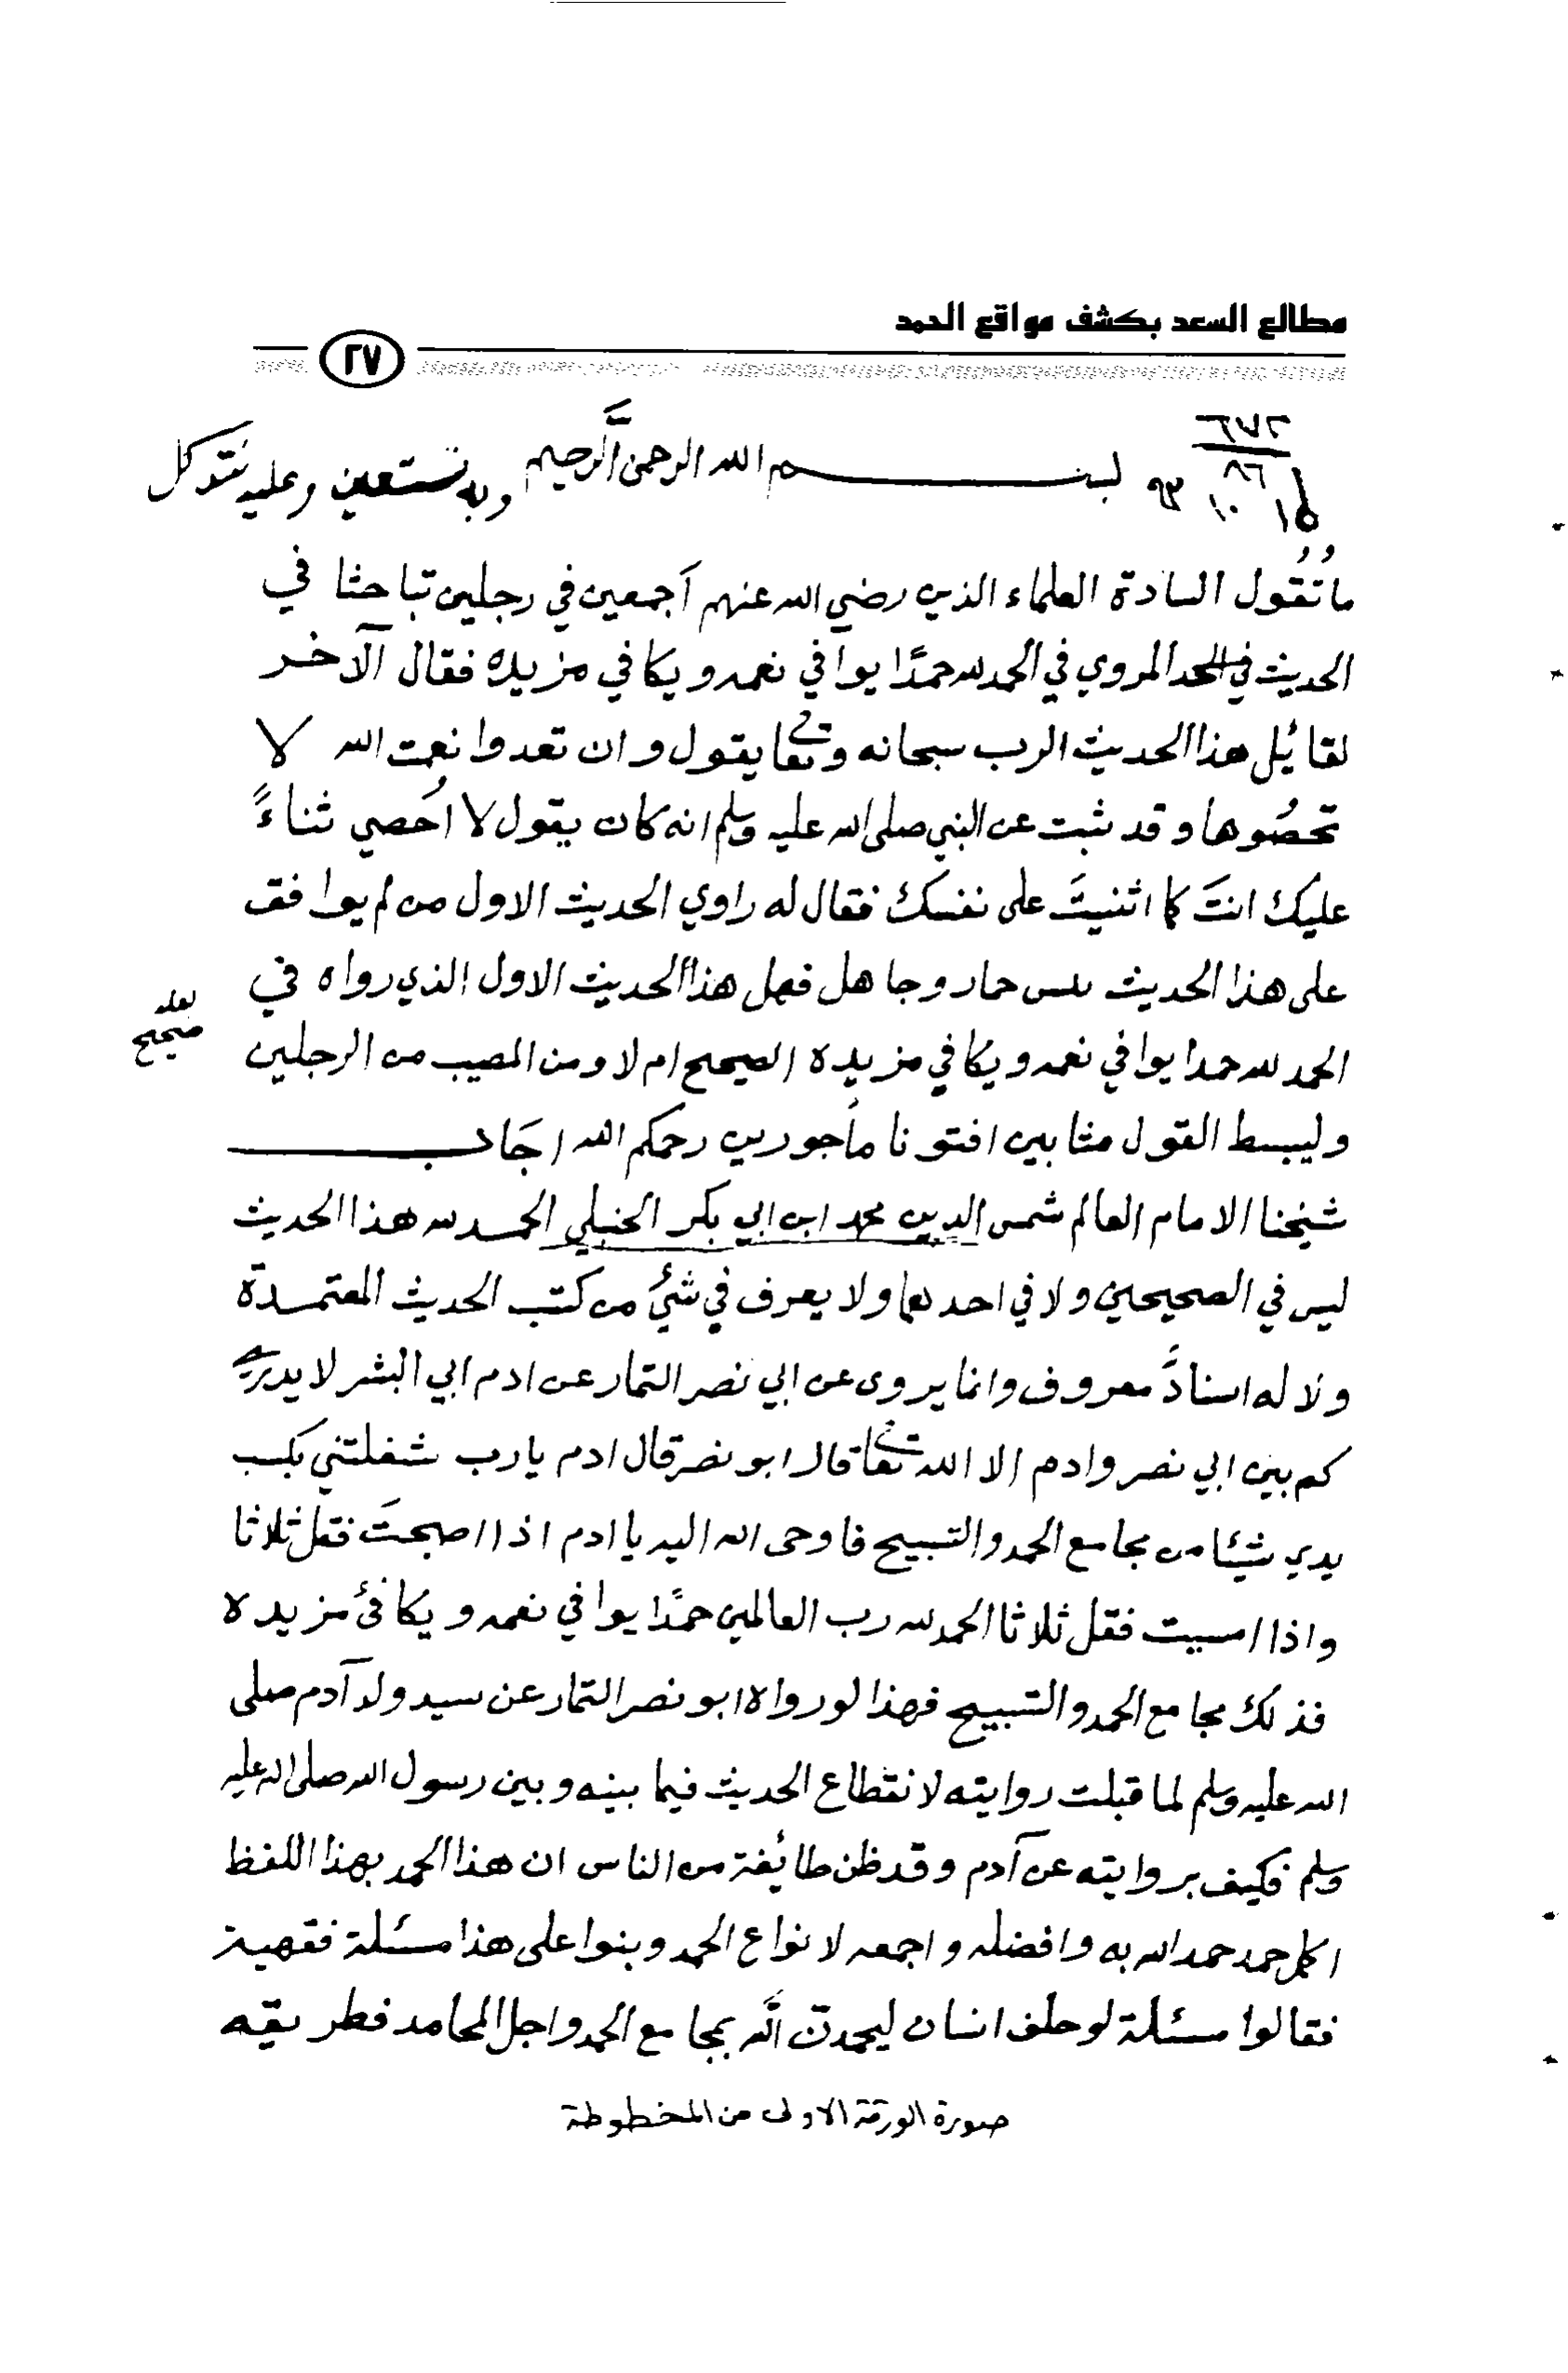 مطالع السعد بكشف مواقع الحمد
٢٧
٦٧٢
٨٦
١٠
٩٣
بسم الله الرحمن الرحيم وبه نستعين وعليه نتوكل
ما تقُول السادة العلماء الذين رضي الله عنهم أجمعين في رجلين تباحثا في
الحديث في الحمد المروي في الحمد لله حمدًا يوافي نعمه ويكافي مزيده فقال الآخر
لقائل هذا الحديث الرب سبحانه وتعا يقول وان تعدوا نعمت الله لا
تحصُوها وقد ثبت عن النبي صلى الله عليه وسلم انه كان يقول لا اُحصي ثناءً
عليك انتَ كما اثنيتَ على نفسك فقال له راوي الحديث الاول من لم يوافق
على هذا الحديث حمار وجاهل فهل هذا الحديث الاول الذي رواه في
لعله
صحيح
الحمد لله حمدا يوافي نعمه ويكافي مزيده الصحيح ام لا ومن المصيب من الرجلين
وليبسط القول مثابين افتونا مأجورين رحمكم الله اجَاب
شيخنا الامام العالم شمس الدين محمد ابن ابي بكر الحنبلي الحمد لله هذا الحديث
ليس في الصحيحين ولا في احدهما ولا يعرف في شئ من كتب الحديث المعتمدة
ولا له اسنادٌ معروف وانما يروى عن ابي نصر التمار عن ادم ابي البشر لا يدري
كم بين ابي نصر وادم الا الله تعا قال ابو نصر قال ادم يا رب شغلتني بكسب
يدي شيئا من مجامع الحمد والتسبيح فاوحى الله اليه يا ادم اذا اصبحتَ فقل ثلاثا
واذا امسيت فقل ثلاثا الحمد لله رب العالمين حمدًا يوافي نعمه ويكافئ مزيده
فذلك مجامع الحمد والتسبيح فهذا لو رواه ابو نصر التمار عن سيد ولد آدم صلى
الله عليه وسلم لما قبلت روايته لانقطاع الحديث فيما بينه وبين رسول الله صلى الله عليه
وسلم فكيف بروايته عن آدم وقد ظن طائفة من الناس ان هذا الحمد بهذا اللفظ
اكمل حمد حمد الله به وافضله واجمعه لانواع الحمد وبنوا على هذا مسئلة فقهية
فقالوا مسئلة لو حلف انسان ليحمدن الله بمجامع الحمد واجل المحامد فطريقه
صورة الورقة الاولى من المخطوطة